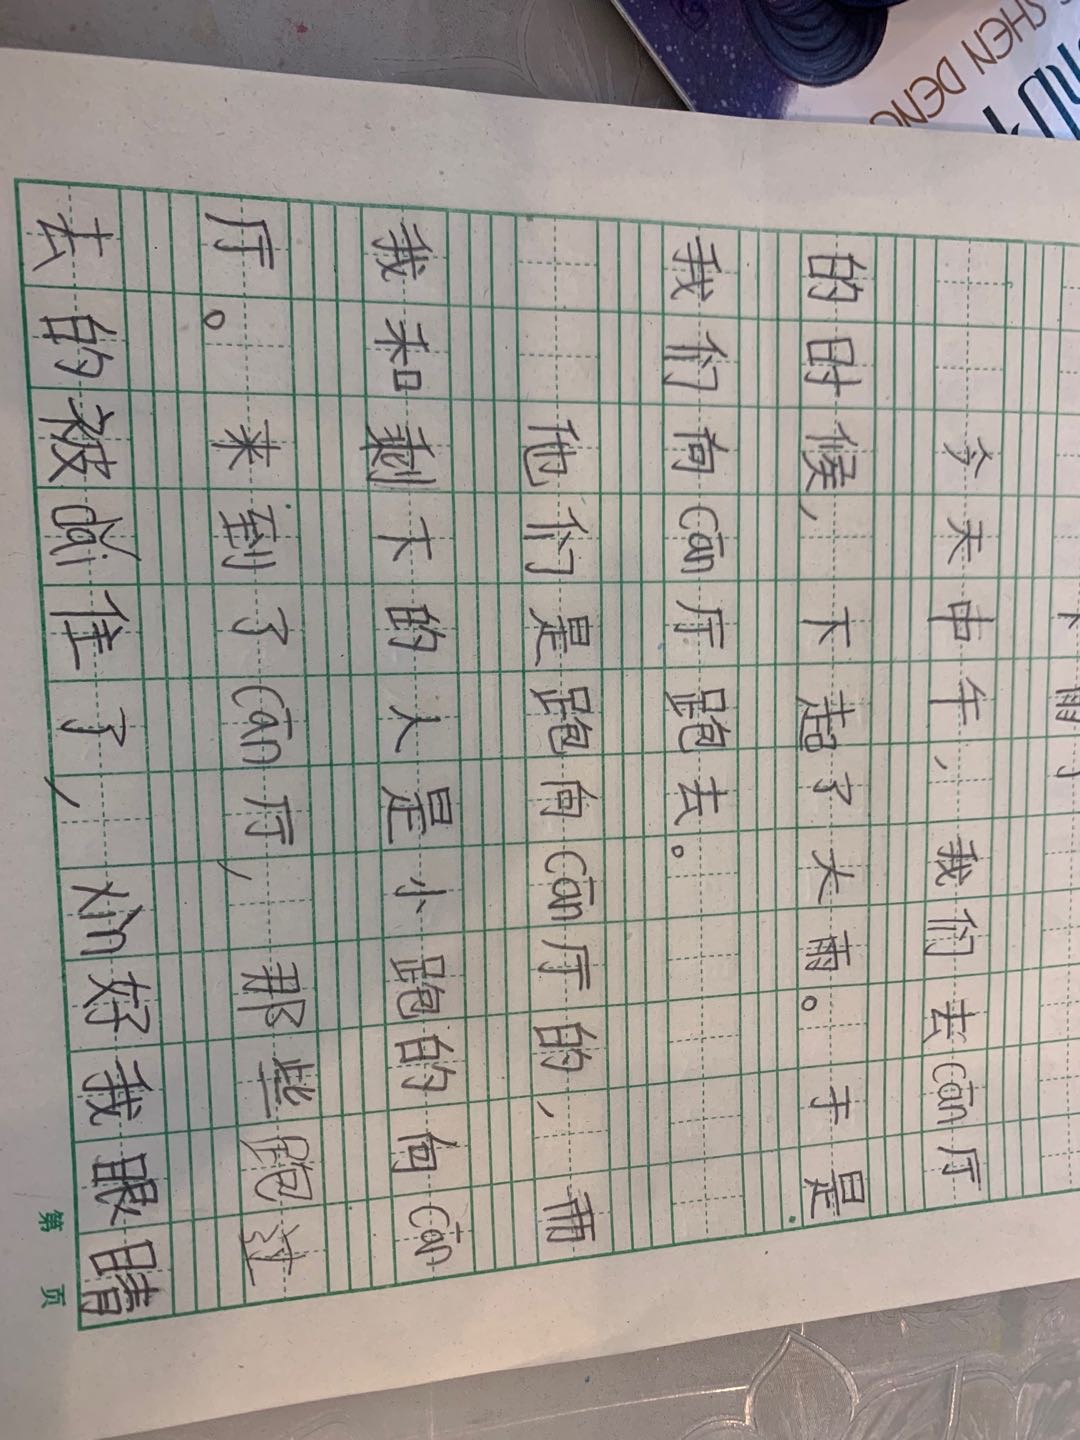 下雨了
今天中午，我们去cān厅
的时候，下起了大雨。于是
我们向cān厅跑去。
他们是跑向cān厅的，而
我和剩下的人是小跑的向cān
厅。来到了cān厅，那些跑过
去的被dǎi住了，xìn好我眼睛
第 页
SHEN DENG